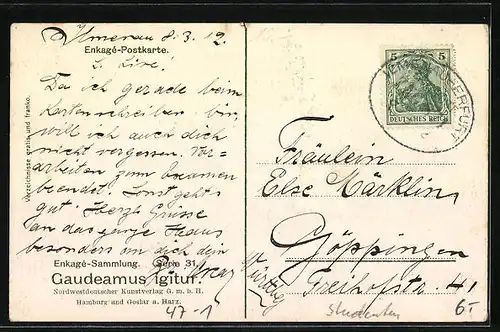 Ilmenau 8.3.12.
Enkagé-Postkarte.
L. Else!
Da ich gerade beim
Kartenschreiben bin,
will ich auch dich
nicht vergessen. Vor-
arbeiten zum Examen
beendet. Sonst geht's
gut. Herzl. Grüsse
an das ganze Haus
besonders an dich dein
Enkagé-Sammlung. Serie 31.
Gaudeamus igitur.
Nordwestdeutscher Kunstverlag G. m. b. H.
Hamburg und Goslar a. Harz.
47-1
Verzeichnisse gratis und franko.
5 5
DEUTSCHES REICH
ERFURT
Fräulein
Else Märklin
Göppingen
Württbg
Freihofstr. 41
Studenten